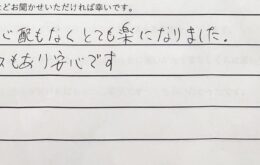 などお聞かせいただければ幸いです。
心配もなくとても楽になりました。
スもあり安心です